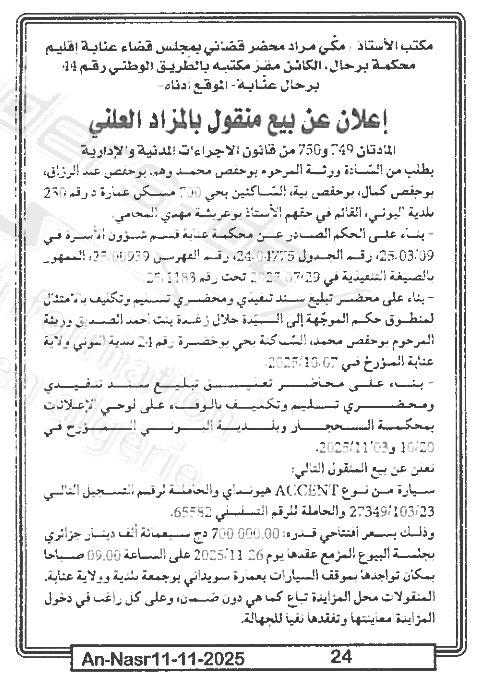 مكتب الأستاذ / مكي مراد محضر قضائي بمجلس قضاء عنابة إقليم
محكمة برحال، الكائن مقر مكتبه بالطريق الوطني رقم 44
برحال عنابة- الموقع أدناه-
إعلان عن بيع منقول بالمزاد العلني
المادتان 749 و750 من قانون الاجراءات المدنية والإدارية
بطلب من السادة ورثة المرحوم بوحفص محمد وهم: بوحفص عبد الرزاق،
بوحفص كمال، بوحفص بية، الساكنين بحي 700 مسكن عمارة د رقم 230
بلدية البوني، القائم في حقهم الأستاذ بوعريشة مهدي المحامي.
- بناء على الحكم الصادر عن محكمة عنابة قسم شؤون الأسرة في
25/03/09، رقم الجدول 24/04775، رقم الفهرس 25/00939، الممهور
بالصيغة التنفيذية في 2025/07/29 تحت رقم 25/1183.
- بناء على محضر تبليغ سند تنفيذي ومحضري تسليم وتكليف بالامتثال
لمنطوق حكم الموجهة إلى السيدة حلال زغدة بنت أحمد الصديق ورثة
المرحوم بوحفص محمد، الساكنة بحي بوخضرة رقم 24 بلدية البوني ولاية
عنابة المؤرخ في 2025/10/07.
- بناء على محاضر تعليق تبليغ سند تنفيذي
ومحضري تسليم وتكليف بالوفاء على لوحي الإعلانات
بمحكمة الحجار وبلدية البوني المؤرخ في
10/20 و2025/11/03.
نعلن عن بيع المنقول التالي:
سيارة من نوع ACCENT هيونداي والحاملة لرقم التسجيل التالي
27349/103/23 والحاملة للرقم التسلسلي 65582.
وذلك بسعر افتتاحي قدره: 700.000.00 دج سبعمائة ألف دينار جزائري
بجلسة البيوع المزمع عقدها يوم 2025/11/26 على الساعة 09.00 صباحا
يمكان تواجدها بموقف السيارات بعمارة سويداني بوجمعة بلدية وولاية عنابة.
المنقولات محل المزايدة تباع كما هي دون ضمان، وعلى كل راغب في دخول
المزايدة معاينتها وتفقدها نفيا للجهالة.
An-Nasr11-11-2025 24